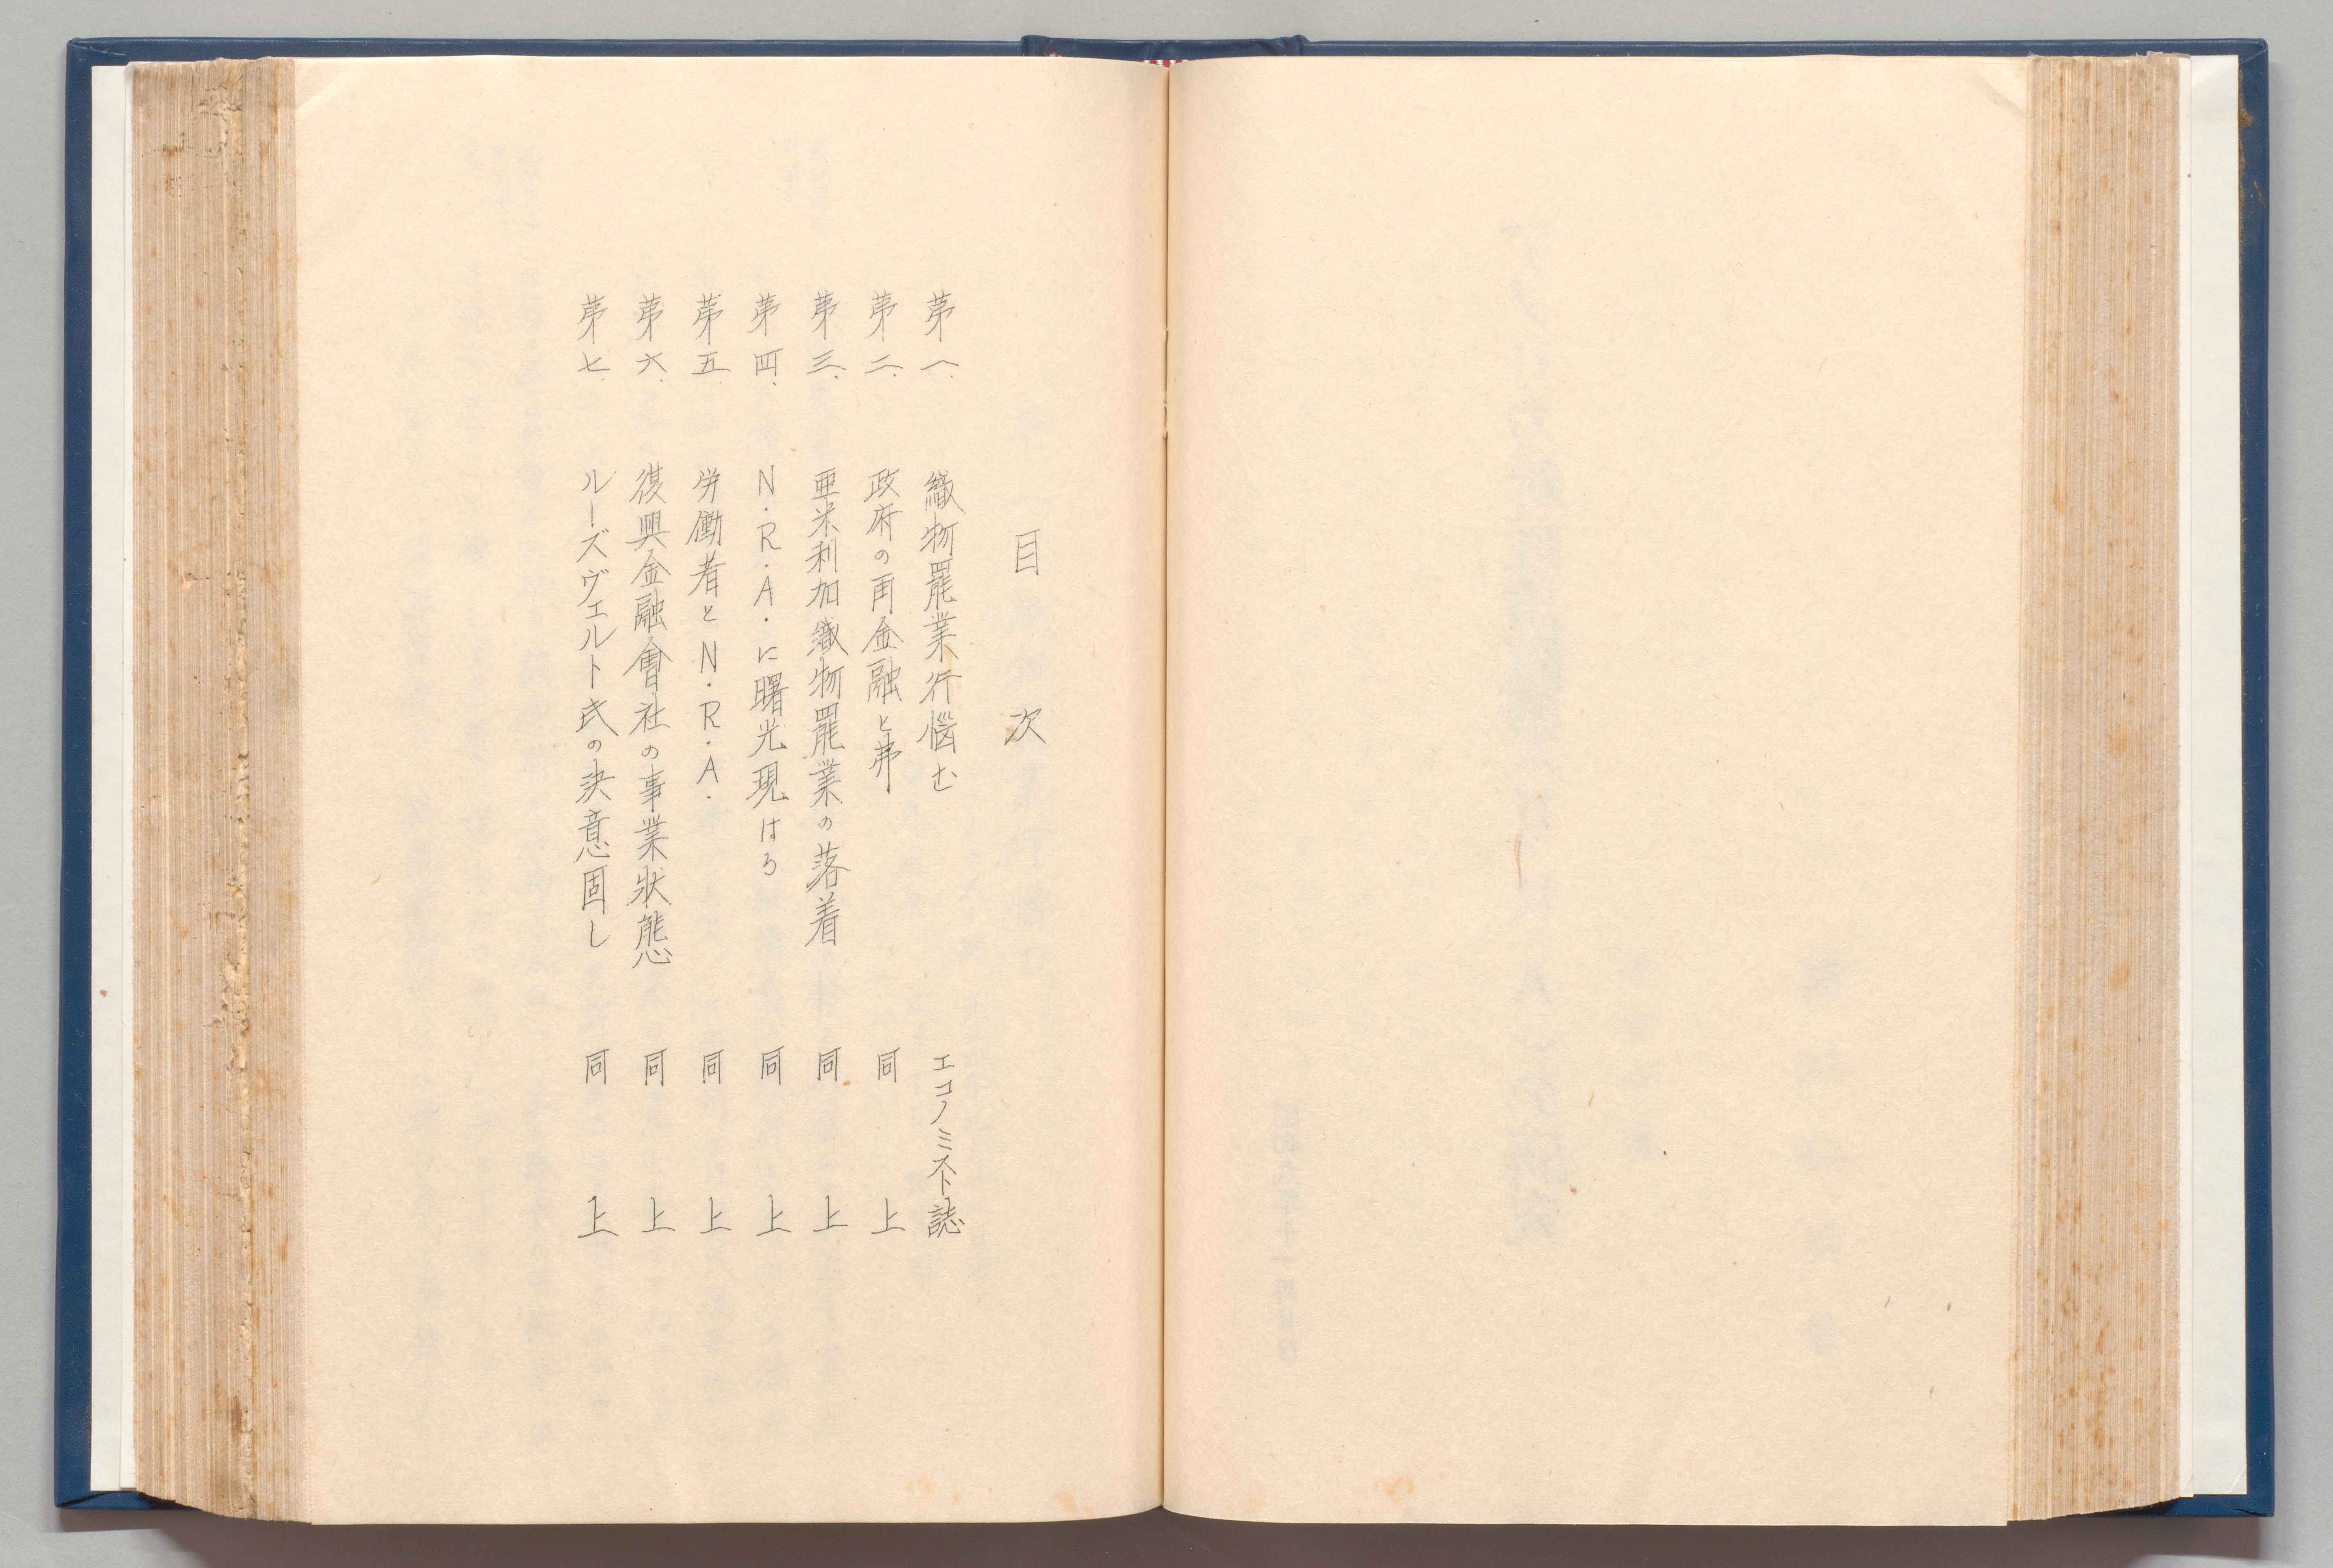 目次
第一、 織物罷業行悩む エコノミスト誌
第二、 政府の再金融と弗 同上
第三、 亜米利加織物罷業の落着 同上
第四、 N・R・A・に曙光現はる 同上
第五、 労働者とN・R・A・ 同上
第六、 復興金融會社の事業狀態 同上
第七、 ルーズヴェルト氏の決意固し 同上